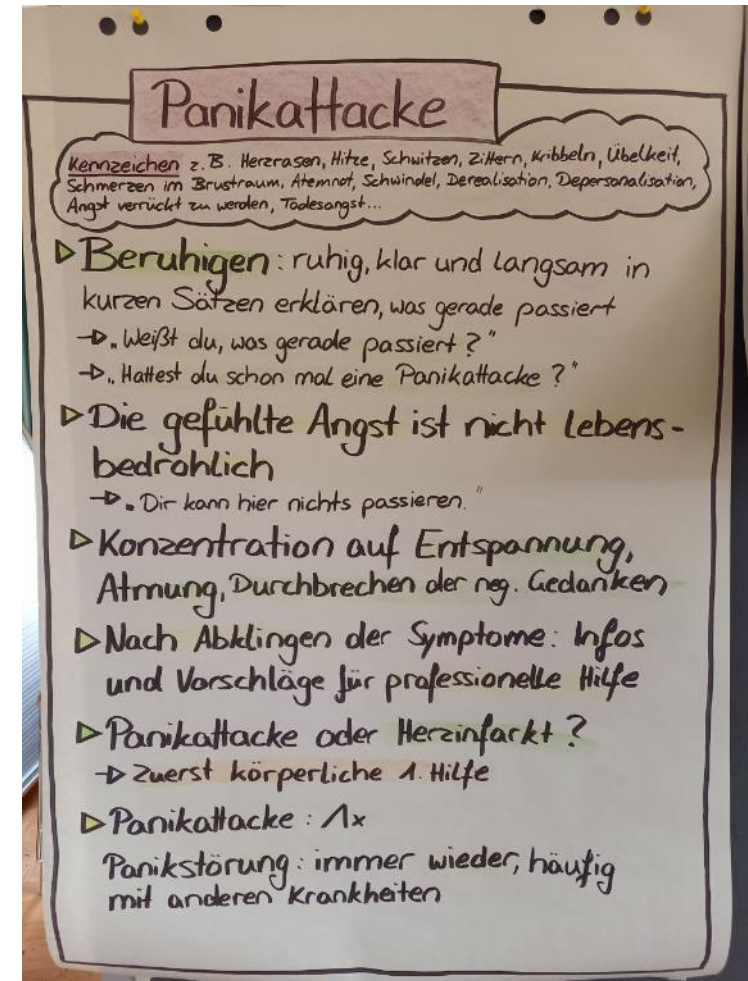 Panikattacke
Kennzeichen z.B. Herzrasen, Hitze, Schwitzen, Zittern, Kribbeln, Übelkeit,
Schmerzen im Brustraum, Atemnot, Schwindel, Derealisation, Depersonalisation,
Angst verrückt zu werden, Todesangst...
▷ Beruhigen: ruhig, klar und langsam in
kurzen Sätzen erklären, was gerade passiert
→ „Weißt du, was gerade passiert?"
→ „Hattest du schon mal eine Panikattacke?"
▷ Die gefühlte Angst ist nicht lebens-
bedrohlich
→ „Dir kann hier nichts passieren."
▷ Konzentration auf Entspannung,
Atmung, Durchbrechen der neg. Gedanken
▷ Nach Abklingen der Symptome: Infos
und Vorschläge für professionelle Hilfe
▷ Panikattacke oder Herzinfarkt?
→ Zuerst körperliche 1. Hilfe
▷ Panikattacke: 1x
Panikstörung: immer wieder, häufig
mit anderen Krankheiten